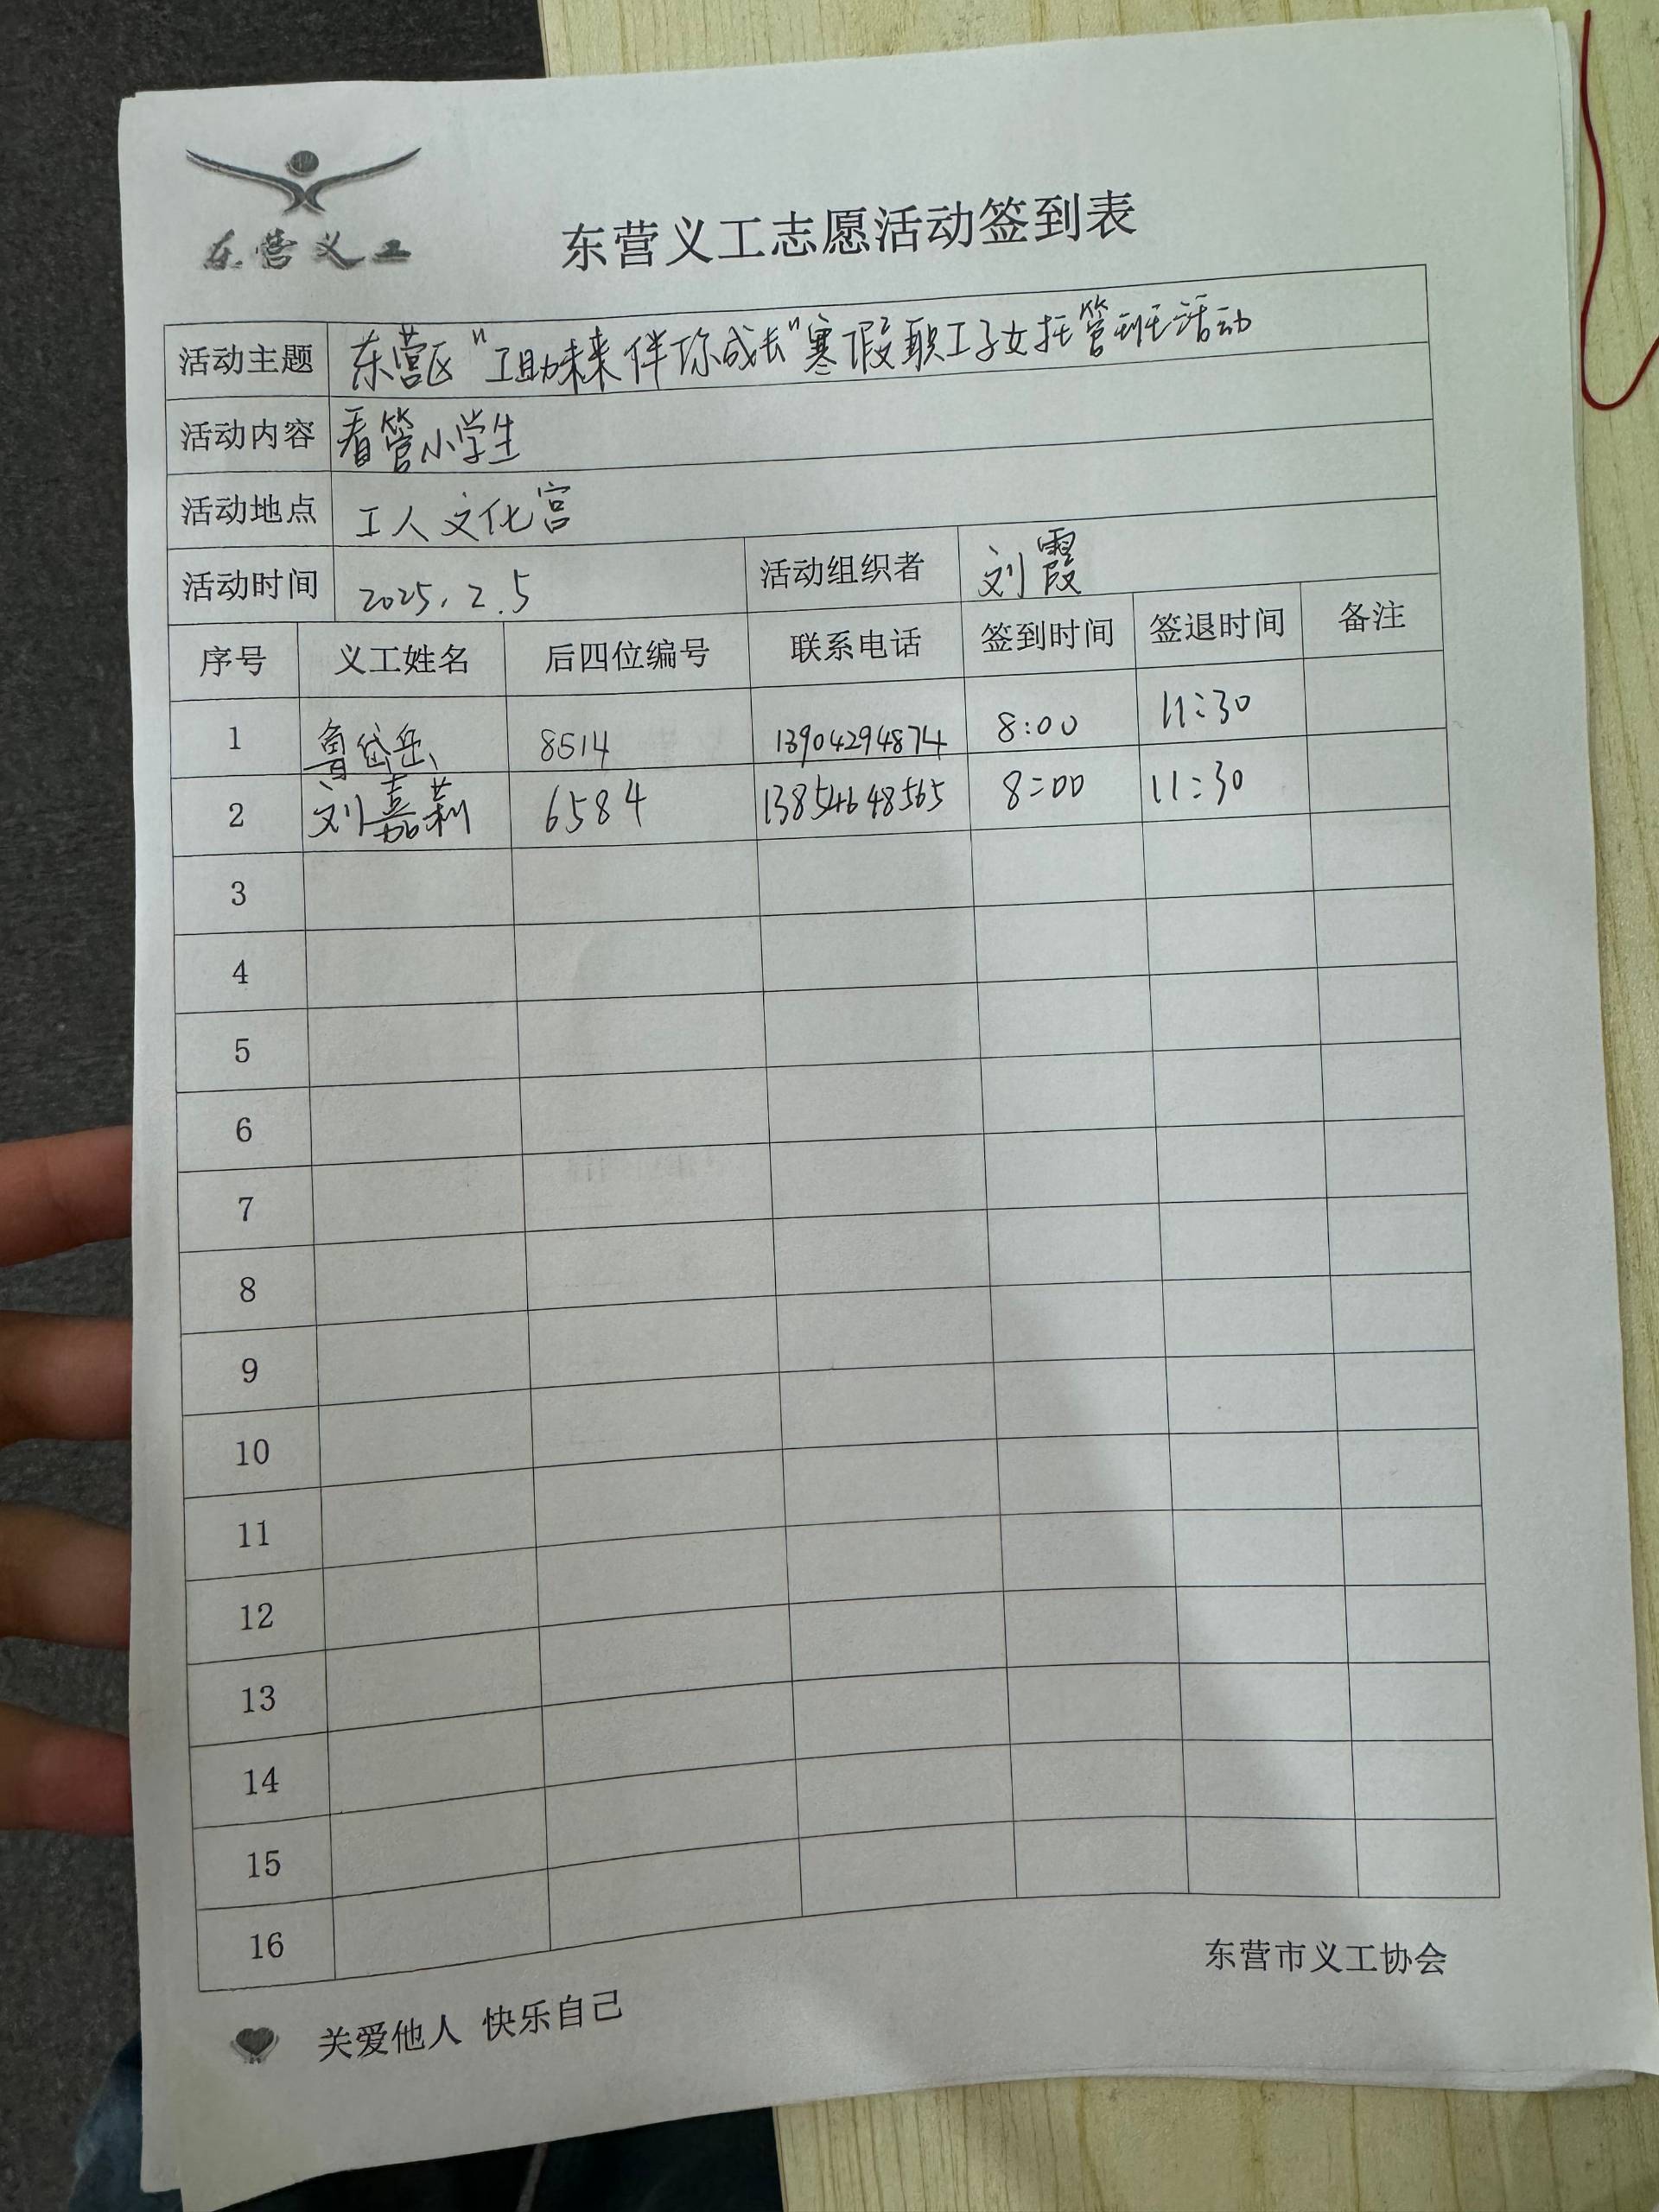 东营义工
东营义工志愿活动签到表
活动主题 东营区"工助未来伴你成长"寒假职工子女托管班活动
活动内容 看管小学生
活动地点 工人文化宫
活动时间 2025.2.5 活动组织者 刘霞
序号 义工姓名 后四位编号 联系电话 签到时间 签退时间 备注
1 鲁岱岳 8514 13904294874 8:00 11:30
2 刘嘉莉 6584 13854648565 8:00 11:30
3
4
5
6
7
8
9
10
11
12
13
14
15
16
东营市义工协会
关爱他人 快乐自己